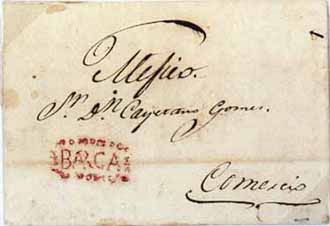 Mexico.
Sr. Dn. Cayetano Gomez.
BARCA
Comercio